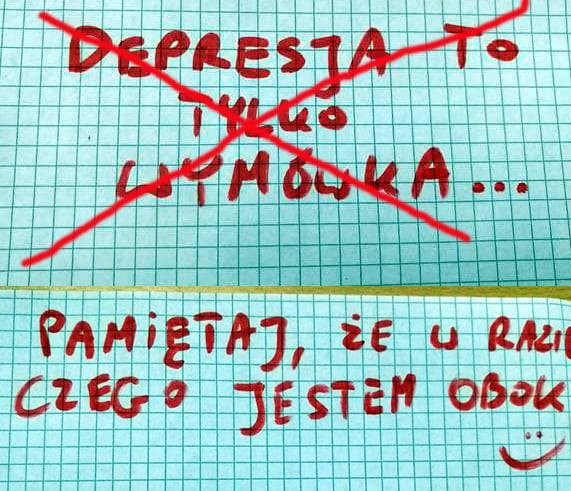 DEPRESJA TO
TYLKO
WYMÓWKA...
PAMIĘTAJ, ŻE W RAZIE
CZEGO JESTEM OBOK